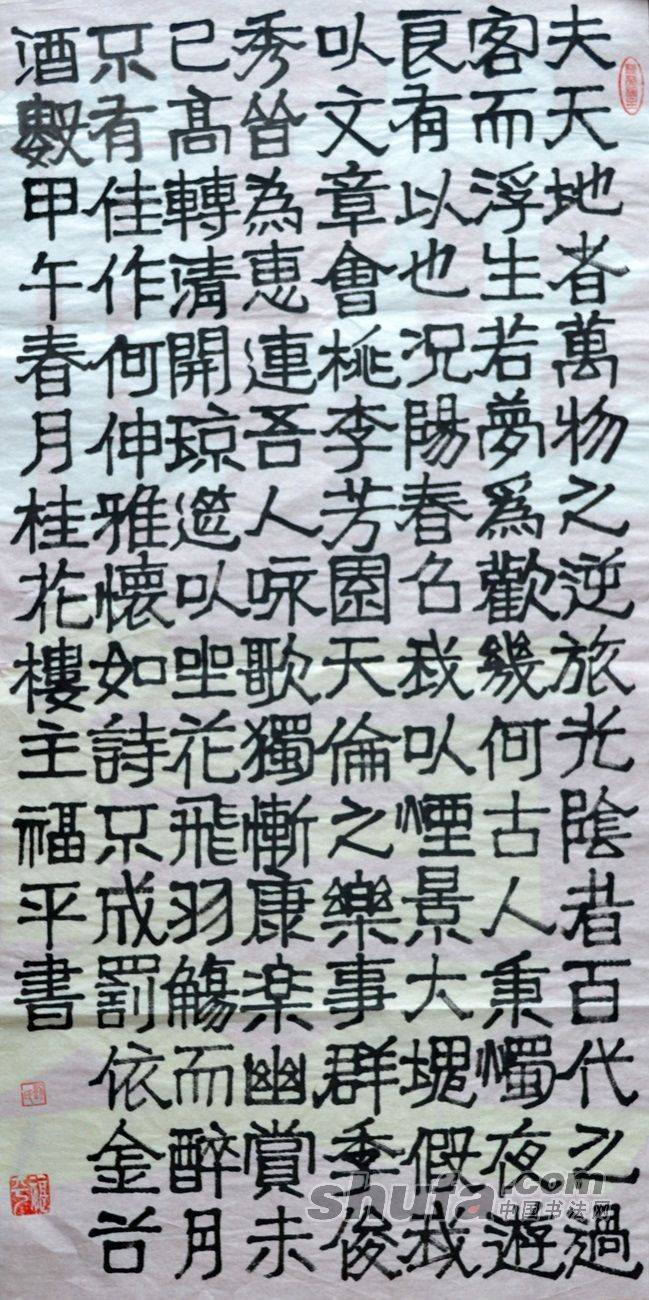 夫天地者萬物之逆旅光陰者百代之過
客而浮生若夢爲歡幾何古人秉燭夜遊
良有以也況陽春召我以煙景大塊假我
以文章會桃李芳園天倫之樂事群季俊
秀皆為惠連吾人咏歌獨慚康楽幽賞未
已高轉清開琼筵以坐花飛羽觴而醉月
不有佳作何伸雅懷如詩不成罰依金谷
酒數甲午春月桂花樓主福平書
shufa.com
中国书法网